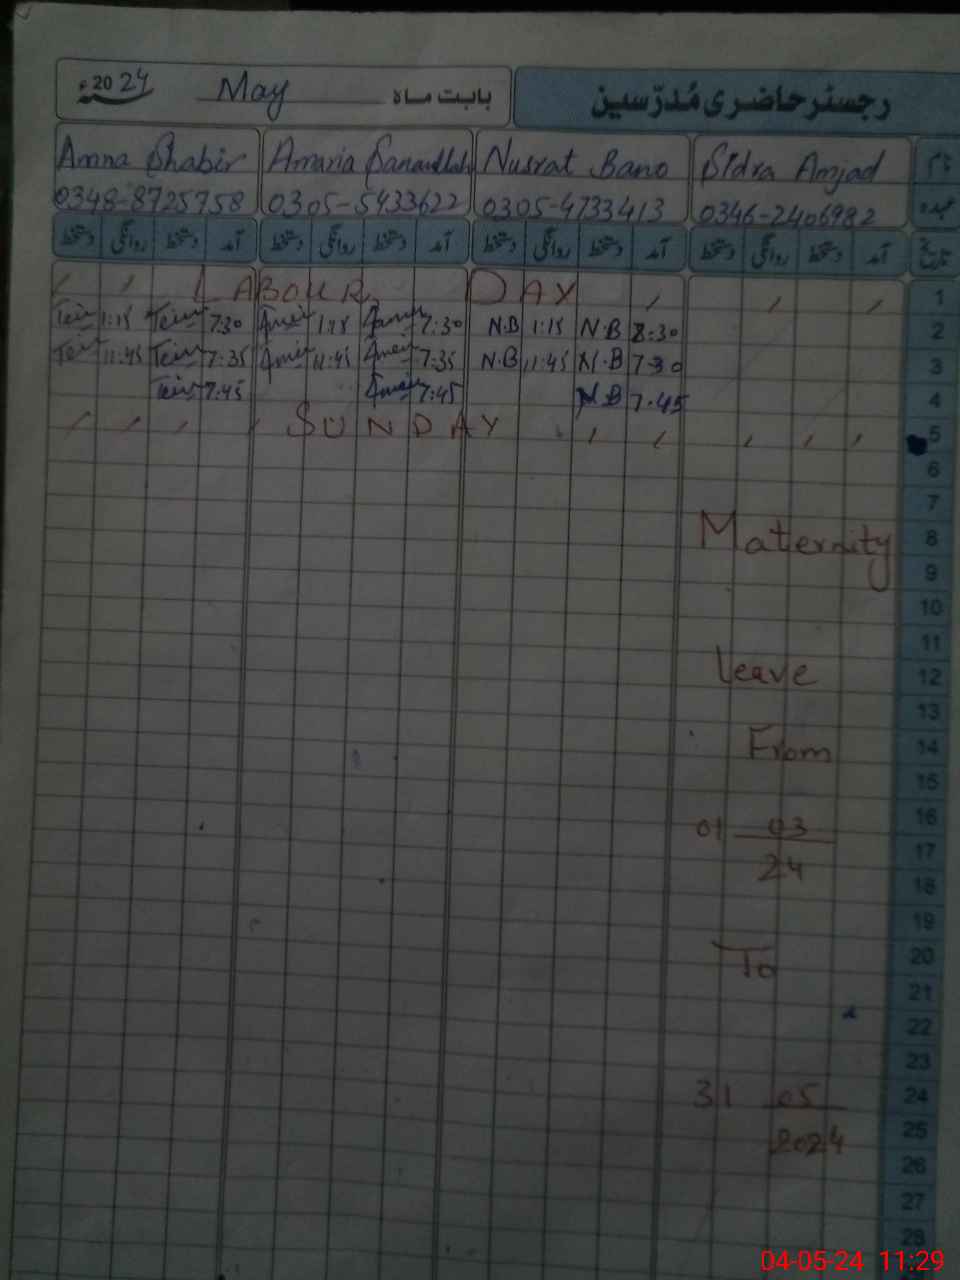 رجسٹر حاضری مُدرّسین
بابت ماہ May 2024ء
نام Sidra Amjad Nusrat Bano Amaria Sanaullah Amna Shabir
عہدہ 0346-2406982 0305-4733413 0305-5433622 0348-8725758
تاریخ آمد دستخط روانگی دستخط آمد دستخط روانگی دستخط آمد دستخط روانگی دستخط آمد دستخط روانگی دستخط
1 LABOUR DAY
2 1:15 7:30 1:15 7:30 N.B 1:15 N.B 8:30
3 11:45 7:35 11:45 7:35 N.B 11:45 N.B 7:30
4 7:45 7:45 N.B 7.45
5 SUNDAY
6
7
8 Maternity
9
10
11
12 Leave
13
14 From
15
16 01 03
17
18 24
19
20 To
21
22
23
24 31 05
25 2024
26
27
28
04-05-24 11:29